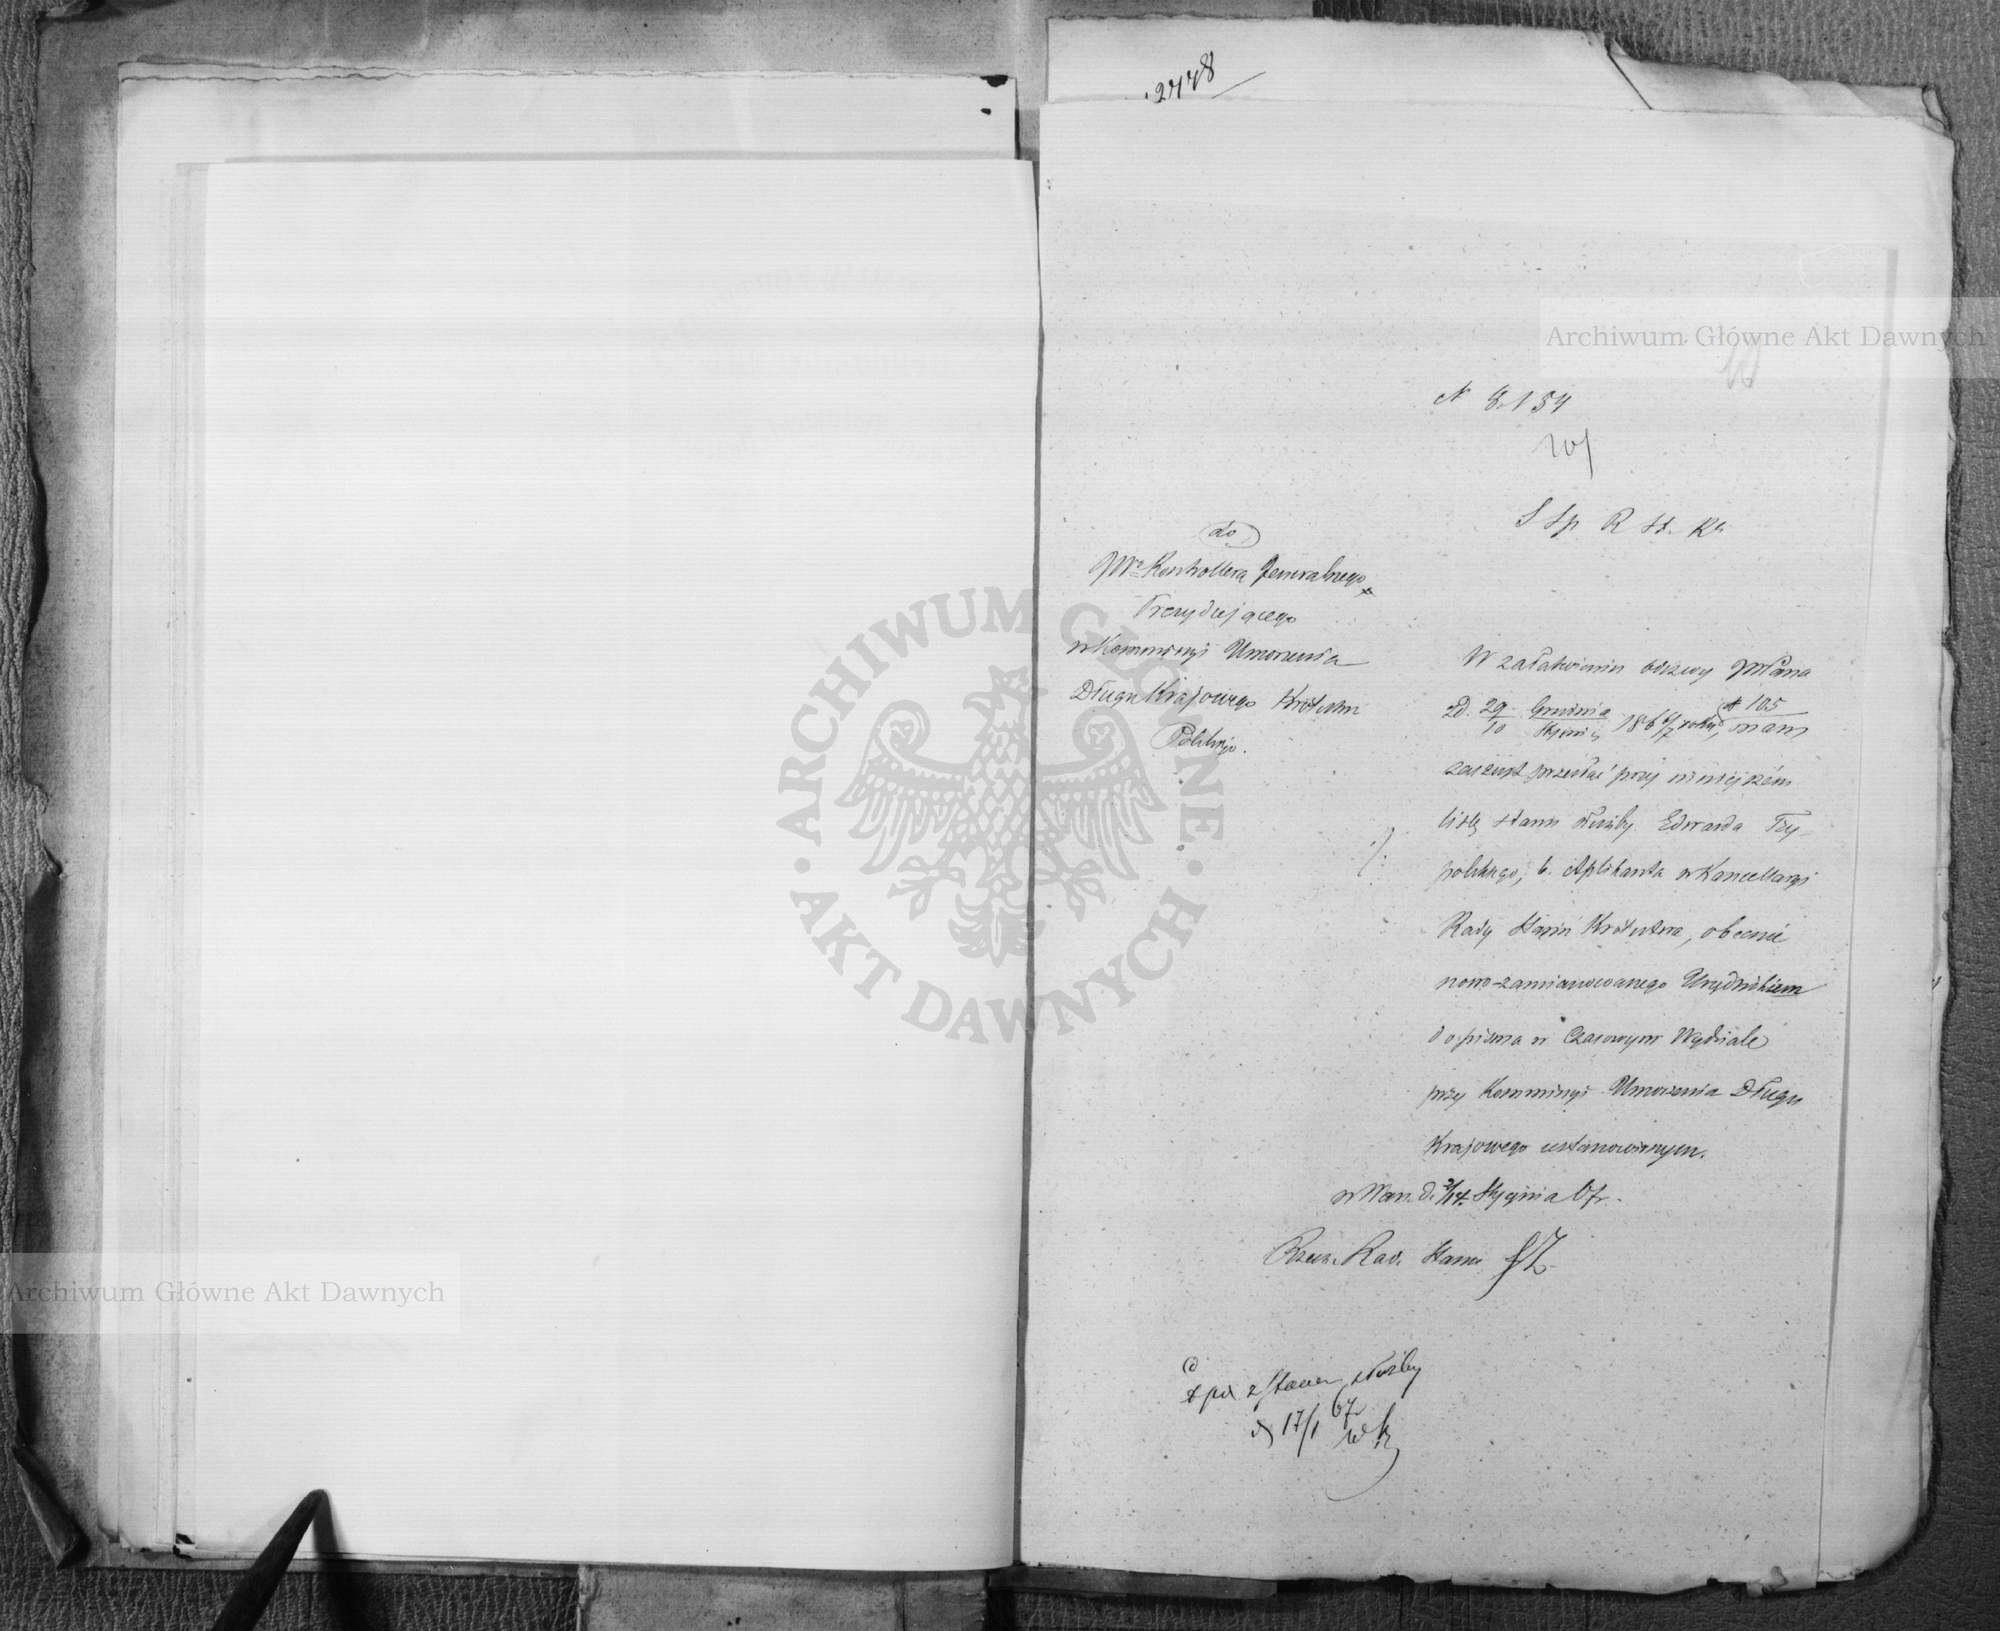 2778
N 8,157
S Sp R St. Kr.
do
JWo Kontrollera Jeneralnego
Prezydującego
w Kommissyi Umorzenia
Długu Krajowego Królestwa
Polskiego.
W załatwieniu odezwy JWPana
z d. 29 Grudnia / 10 Stycznia 1866/7 roku, N 105 mam
zaszczyt przesłać przy niniejszém
listę stanu służby Edwarda Trzy-
polskiego, b. Aplikanta w Kancellaryi
Rady Stanu Królestwa, obecnie
nowo-zamianowanego Urzędnikiem
do pisma w Czasowym Wydziale
przy Kommissyi Umorzenia Długu
Krajowego ustanowionym.
w War. d. 2/14 Stycznia 67 r.
Rzecz. Rad. Stanu
z stanem służby
d 17/1 67
Archiwum Główne Akt Dawnych
Archiwum Główne Akt Dawnych
ARCHIWUM GŁÓWNE AKT DAWNYCH